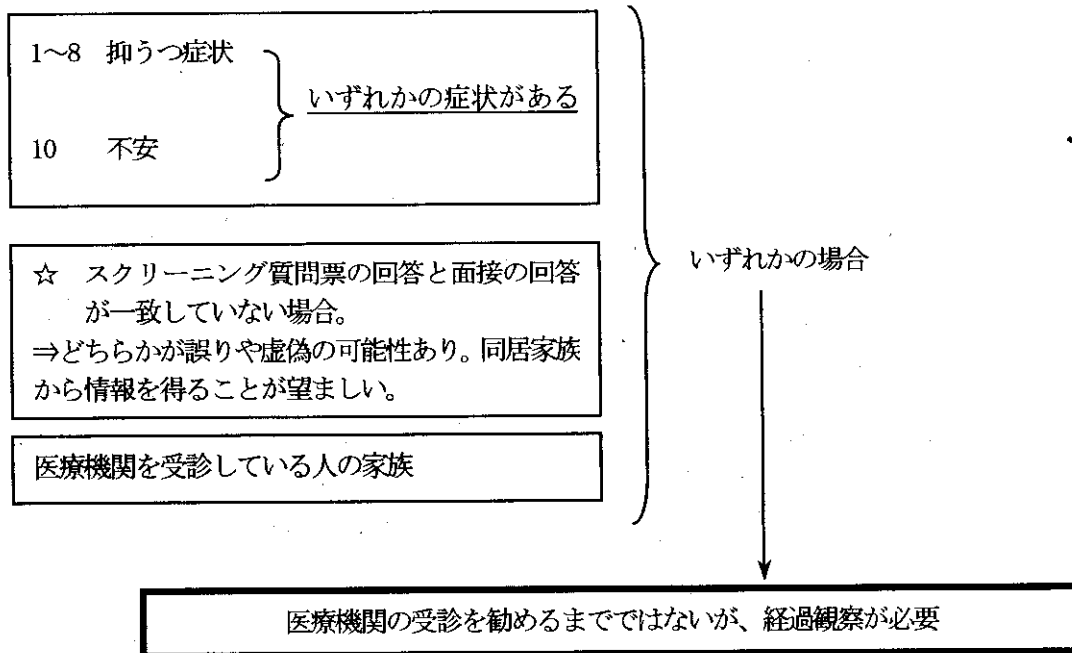 1～8 抑うつ症状
いずれかの症状がある
10 不安
☆ スクリーニング質問票の回答と面接の回答
が一致していない場合。
⇒どちらかが誤りや虚偽の可能性あり。同居家族
から情報を得ることが望ましい。
医療機関を受診している人の家族
いずれかの場合
医療機関の受診を勧めるまでではないが、経過観察が必要